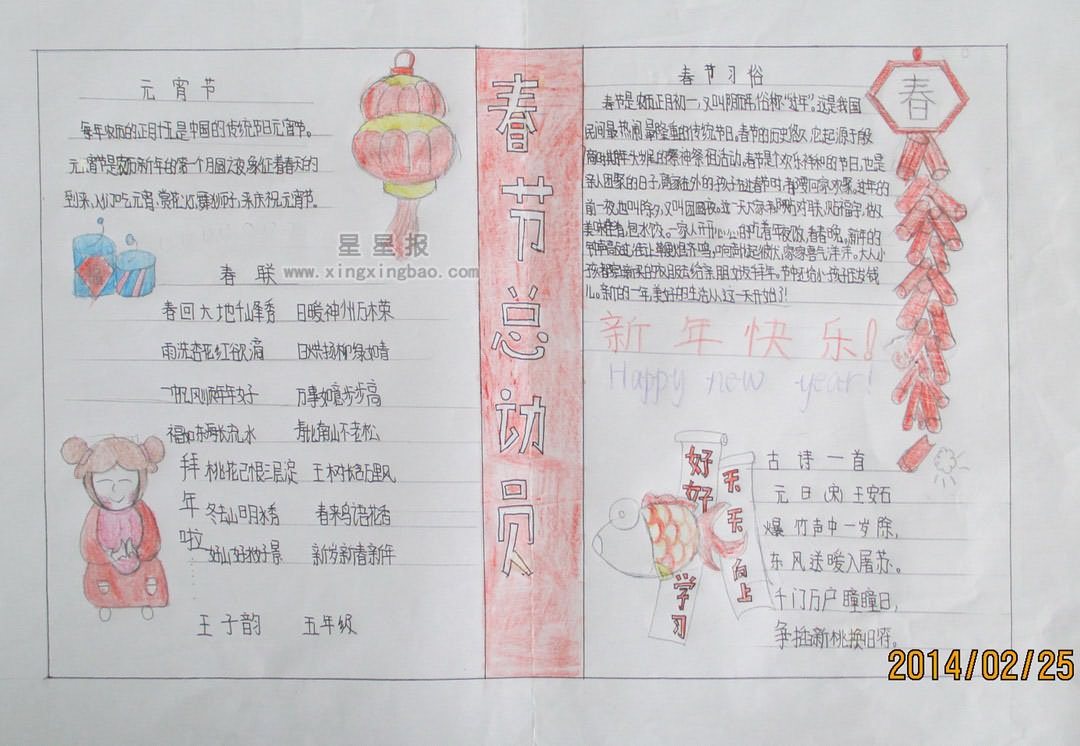 元宵节
每年农历的正月十五是中国的传统节日元宵节。
元宵节是农历新年的第一个月圆之夜,象征着春天的
到来,人们吃元宵、赏花灯、舞狮子,来庆祝元宵节。
星星报
www.xingxingbao.com
春联
春回大地千山秀 日暖神州万木荣
雨洗杏花红欲滴 日烘杨柳绿如青
一帆风顺年年好 万事如意步步高
福如东海长流水 寿比南山不老松
桃花已恨三层浪
冬去山明水秀 春来鸟语花香
好山好水好景 新岁新春新年
拜年啦
王子韵 五年级
春节总动员
春节习俗
春节是农历正月初一,又叫阴历年,俗称“过年”。这是我国
民间最热闹最隆重的传统节日。春节的历史悠久,它起源于殷
商时期年头岁尾的祭神祭祖活动。春节是个欢乐祥和的节日,也是
亲人团聚的日子,离家在外的孩子在过春节时都要回家欢聚。过年的
前一夜也叫除夕,又叫团圆夜。这一天大家都贴对联,贴福字,做
美味佳肴,包水饺。一家人开开心心的吃着年夜饭,看春晚。新年的
大小
孩都穿新衣
儿。新的一年,美好的生活从这一天开始了!
春
新年快乐!
Happy new year!
好好
学习
天天
向上
古诗一首
元日(宋)王安石
爆竹声中一岁除,
东风送暖入屠苏。
千门万户瞳瞳日,
争插新桃换旧符。
2014/02/25